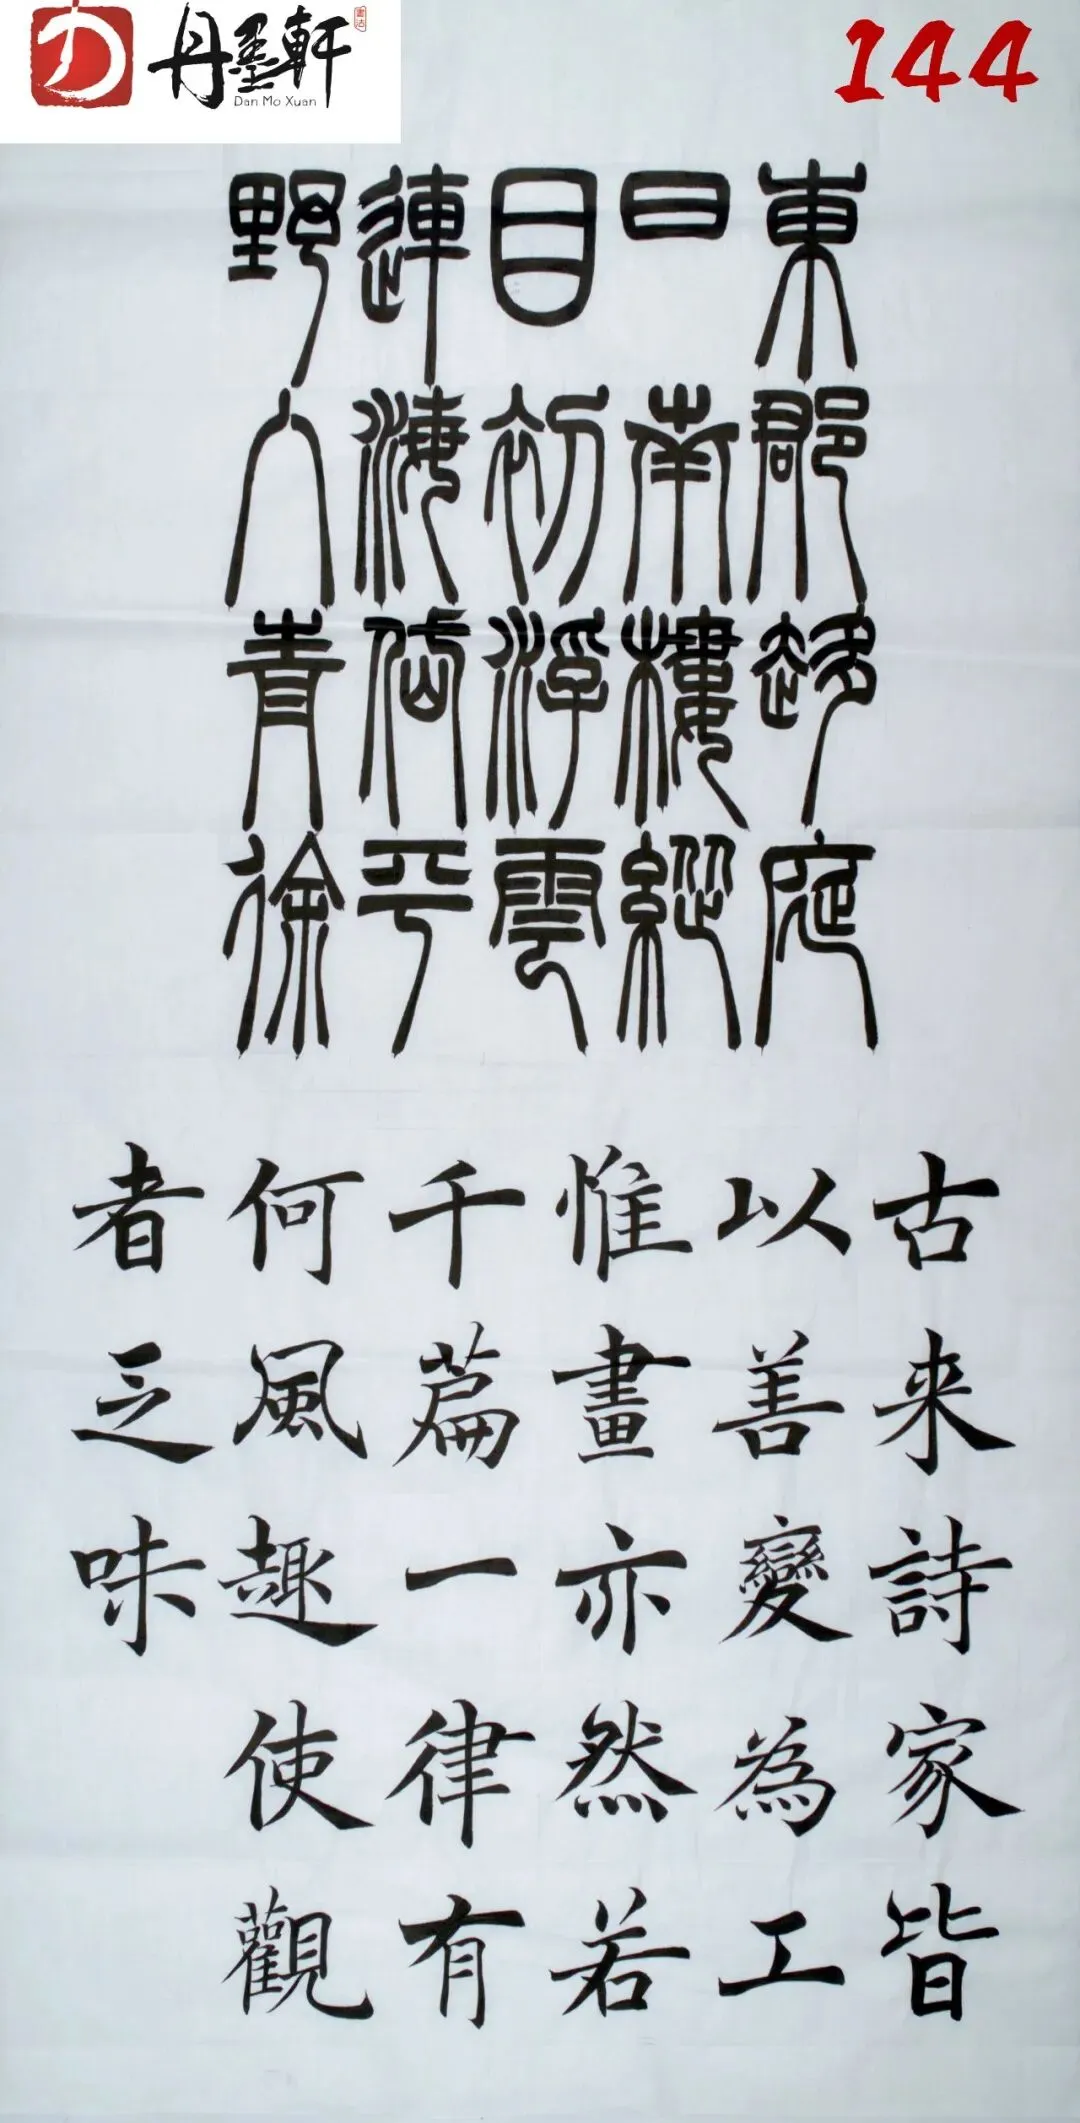 丹墨軒
Dan Mo Xuan
144
東郡趍庭
日南樓縱
目初浮雲
連海岱平
野入青徐
古来詩家皆
以善變為工
惟畫亦然若
千篇一律有
何風趣使觀
者乏味